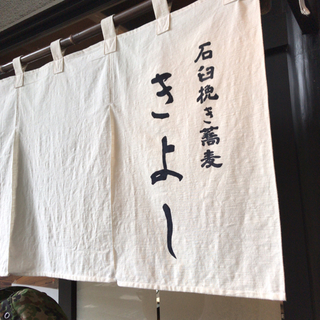 石臼挽き蕎麦
きよし